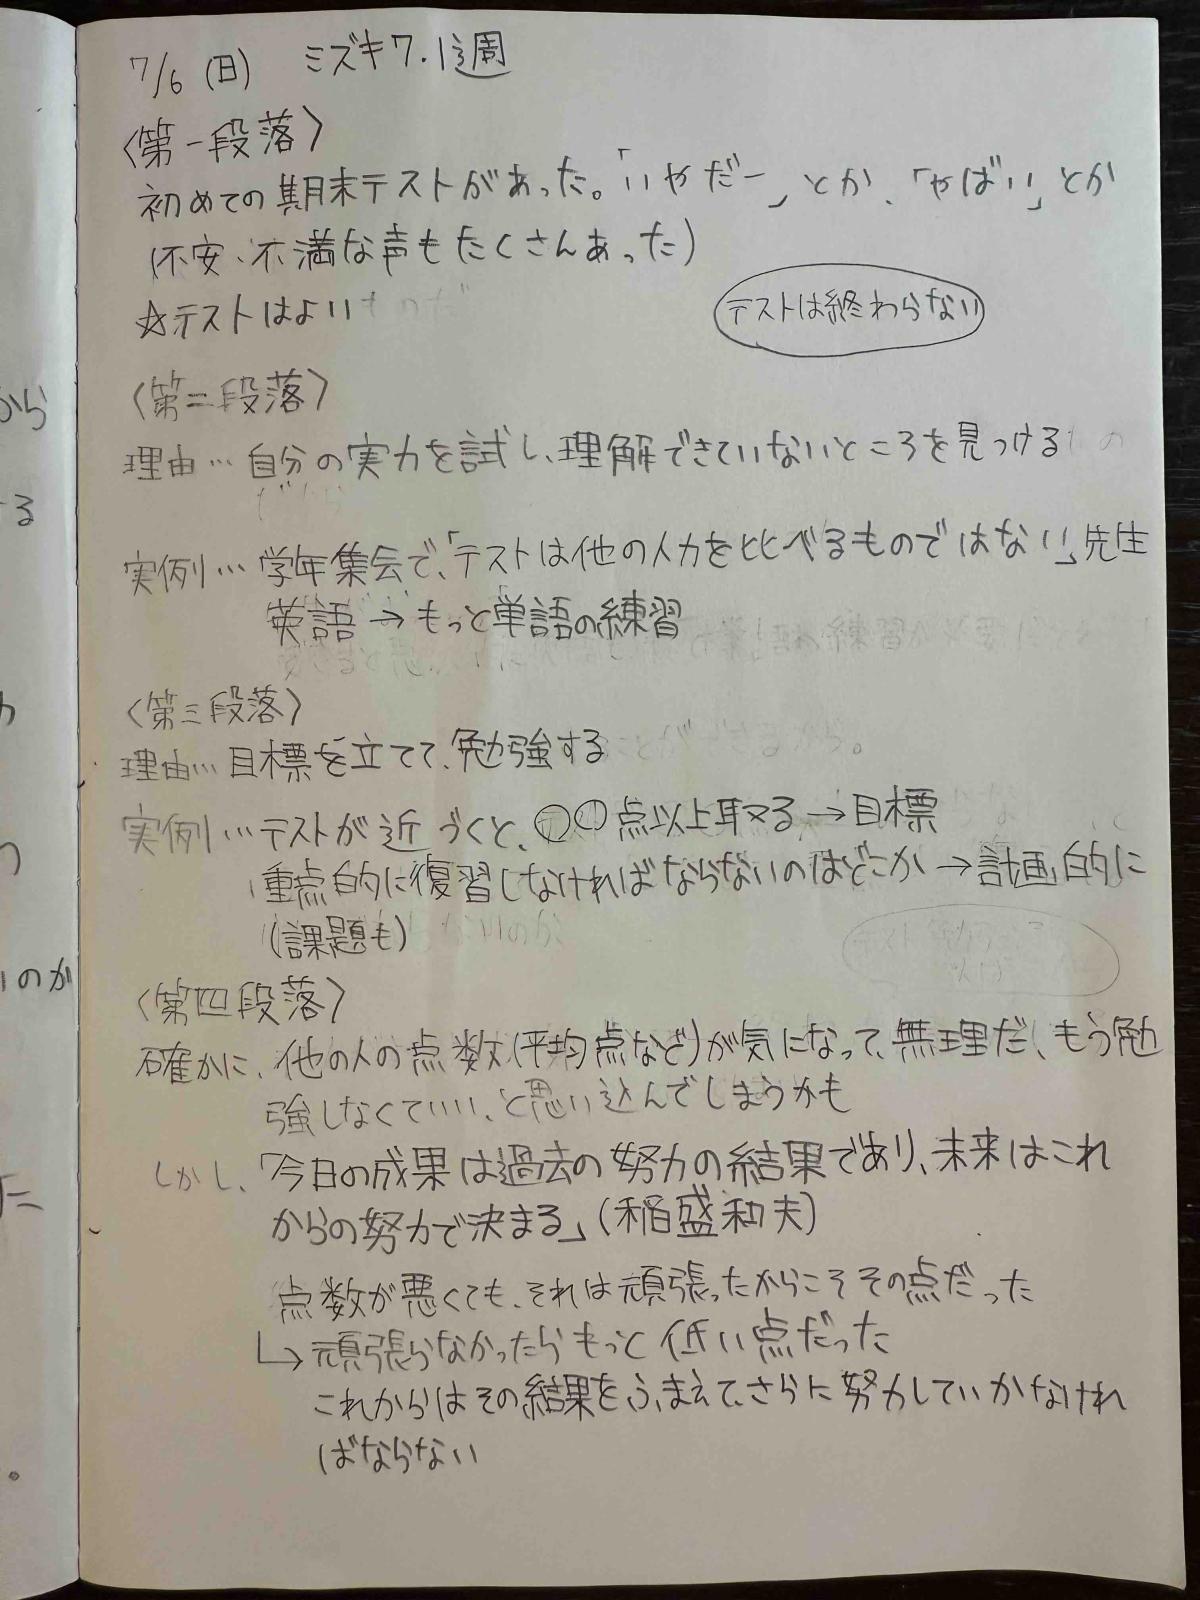 7/6 (日) ミズキ7.1週
〈第一段落〉
初めての期末テストがあった。「いやだー」とか、「やばい」とか
(不安、不満な声もたくさんあった)
☆テストはよいものだ
テストは終わらない
〈第二段落〉
理由…自分の実力を試し、理解できていないところを見つけるもの
だから
実例…学年集会で、「テストは他の人力を比べるものではない」先生
英語→もっと単語の練習
〈第三段落〉
理由…目標を立てて、勉強する
実例…テストが近づくと、○○点以上取る→目標
重点的に復習しなければならないのはどこか→計画的に
(課題も)
〈第四段落〉
確かに、他の人の点数(平均点など)が気になって、無理だ、もう勉
強しなくていい、と思い込んでしまうかも
しかし、「今日の成果は過去の努力の結果であり、未来はこれ
からの努力で決まる」(稲盛和夫)
点数が悪くても、それは頑張ったからこその点だった
↳頑張らなかったらもっと低い点だった
これからはその結果をふまえて、さらに努力していかなけれ
ばならない
から
る
のか
た
。